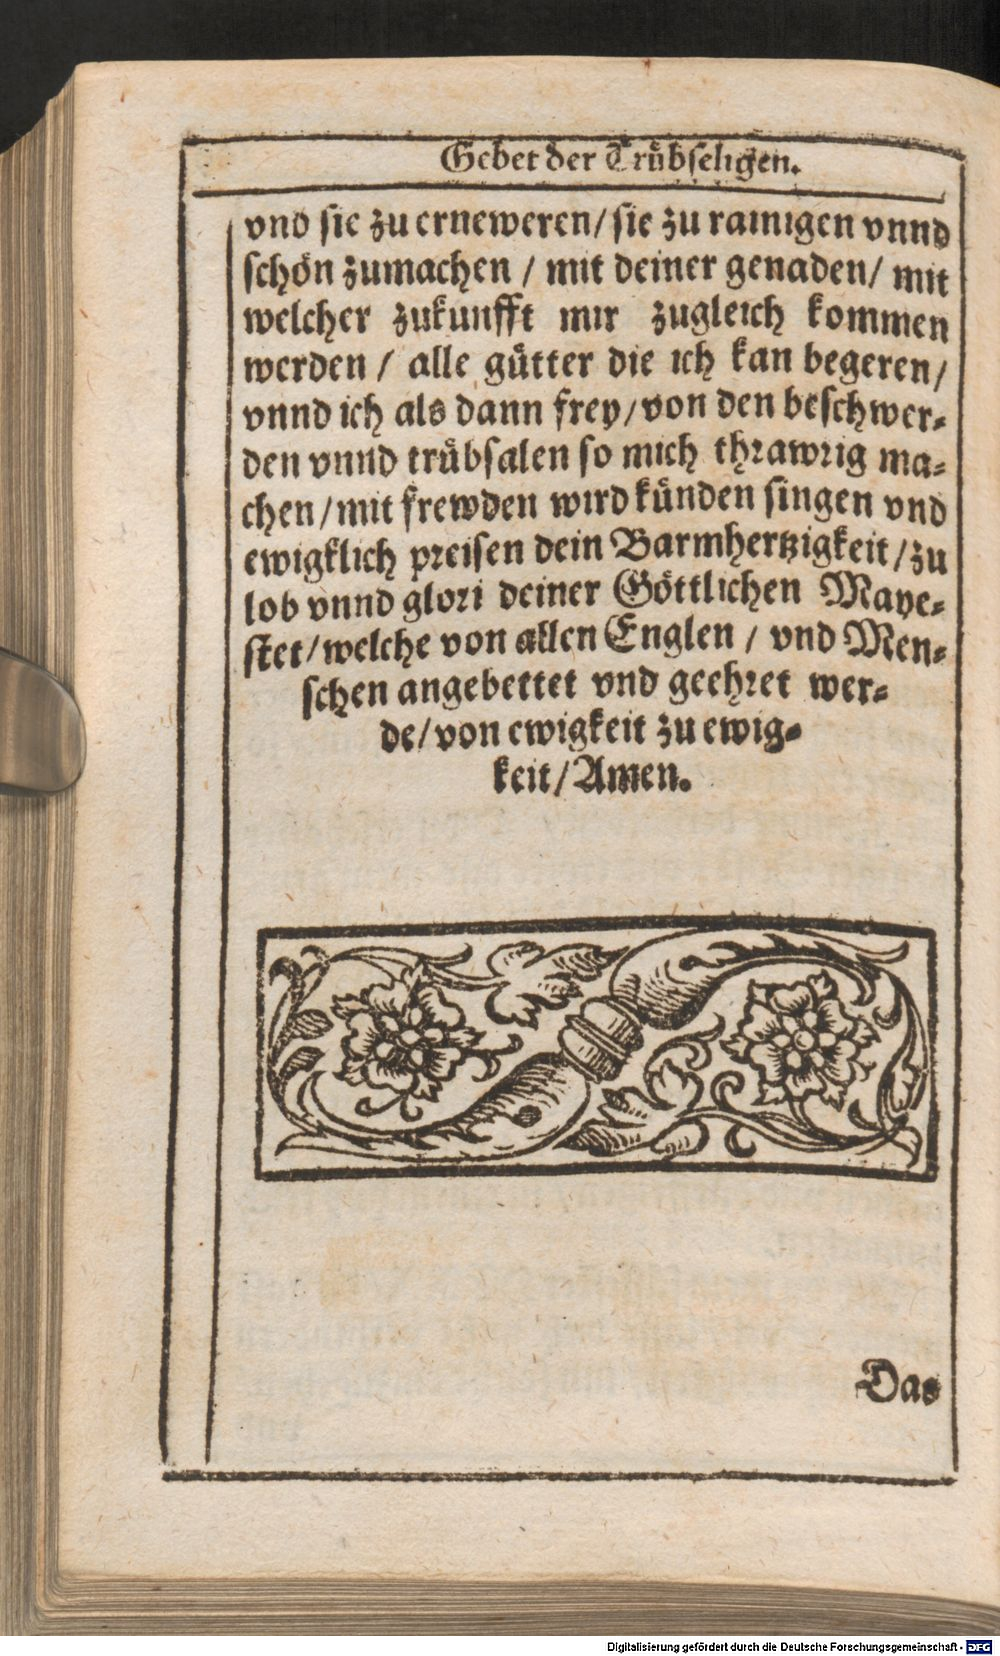 Gebet der Trübseligen.
vnd sie zu erneweren/ sie zu rainigen vnnd
schön zumachen / mit deiner genaden/ mit
welcher zukunfft mir zugleich kommen
werden / alle gütter die ich kan begeren/
vnnd ich als dann frey/ von den beschwer-
den vnnd trübsalen so mich thrawrig ma-
chen/ mit frewden wird künden singen vnd
ewigklich preisen dein Barmhertzigkeit/ zu
lob vnnd glori deiner Göttlichen Maye-
stet/ welche von allen Englen / vnd Men-
schen angebettet vnd geehret wer-
de/ von ewigkeit zu ewig-
keit/ Amen.
Das
Digitalisierung gefördert durch die Deutsche Forschungsgemeinschaft - DFG